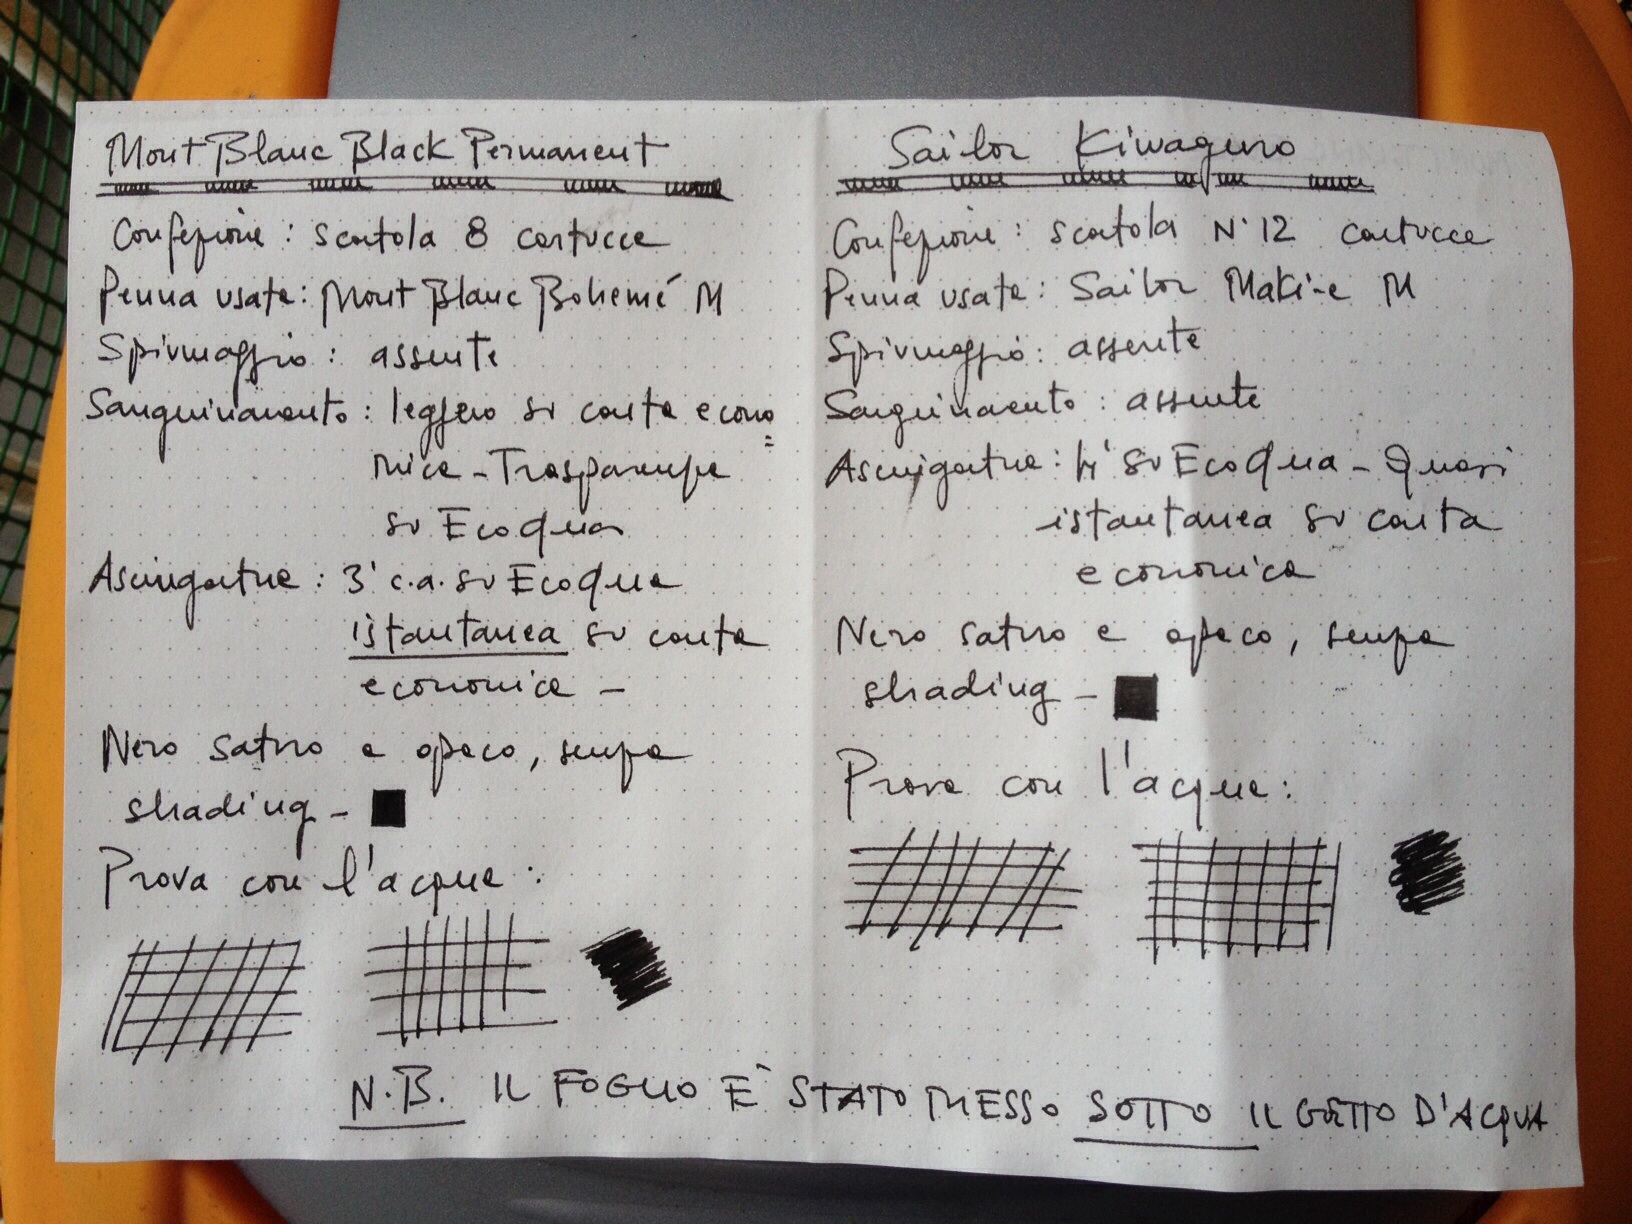 Mont Blanc Black Permanent
Confezione : scatola 8 cartucce
Penna usata : Mont Blanc Bohemé M
Spiumaggio : assente
Sanguinamento : leggero su carta econo
=
mica - Trasparenza
su EcoQua
Asciugatura : 3' c.a. su EcoQua
istantanea su carta
economica -
Nero saturo e opaco, senza
shading -
Prova con l'acqua :
Sailor Kiwaguro
Confezione : scatola N° 12 cartucce
Penna usata : Sailor Maki-e M
Spiumaggio : assente
Sanguinamento : assente
Asciugatura : 4' su EcoQua - Quasi
istantanea su carta
economica
Nero saturo e opaco, senza
shading -
Prova con l'acqua :
N.B. IL FOGLIO E' STATO MESSO SOTTO IL GETTO D'ACQUA